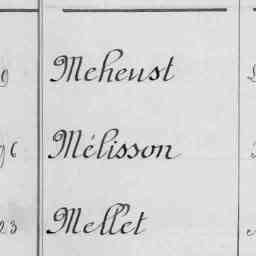 9 Meheust
96 Mélisson
23 Mellet